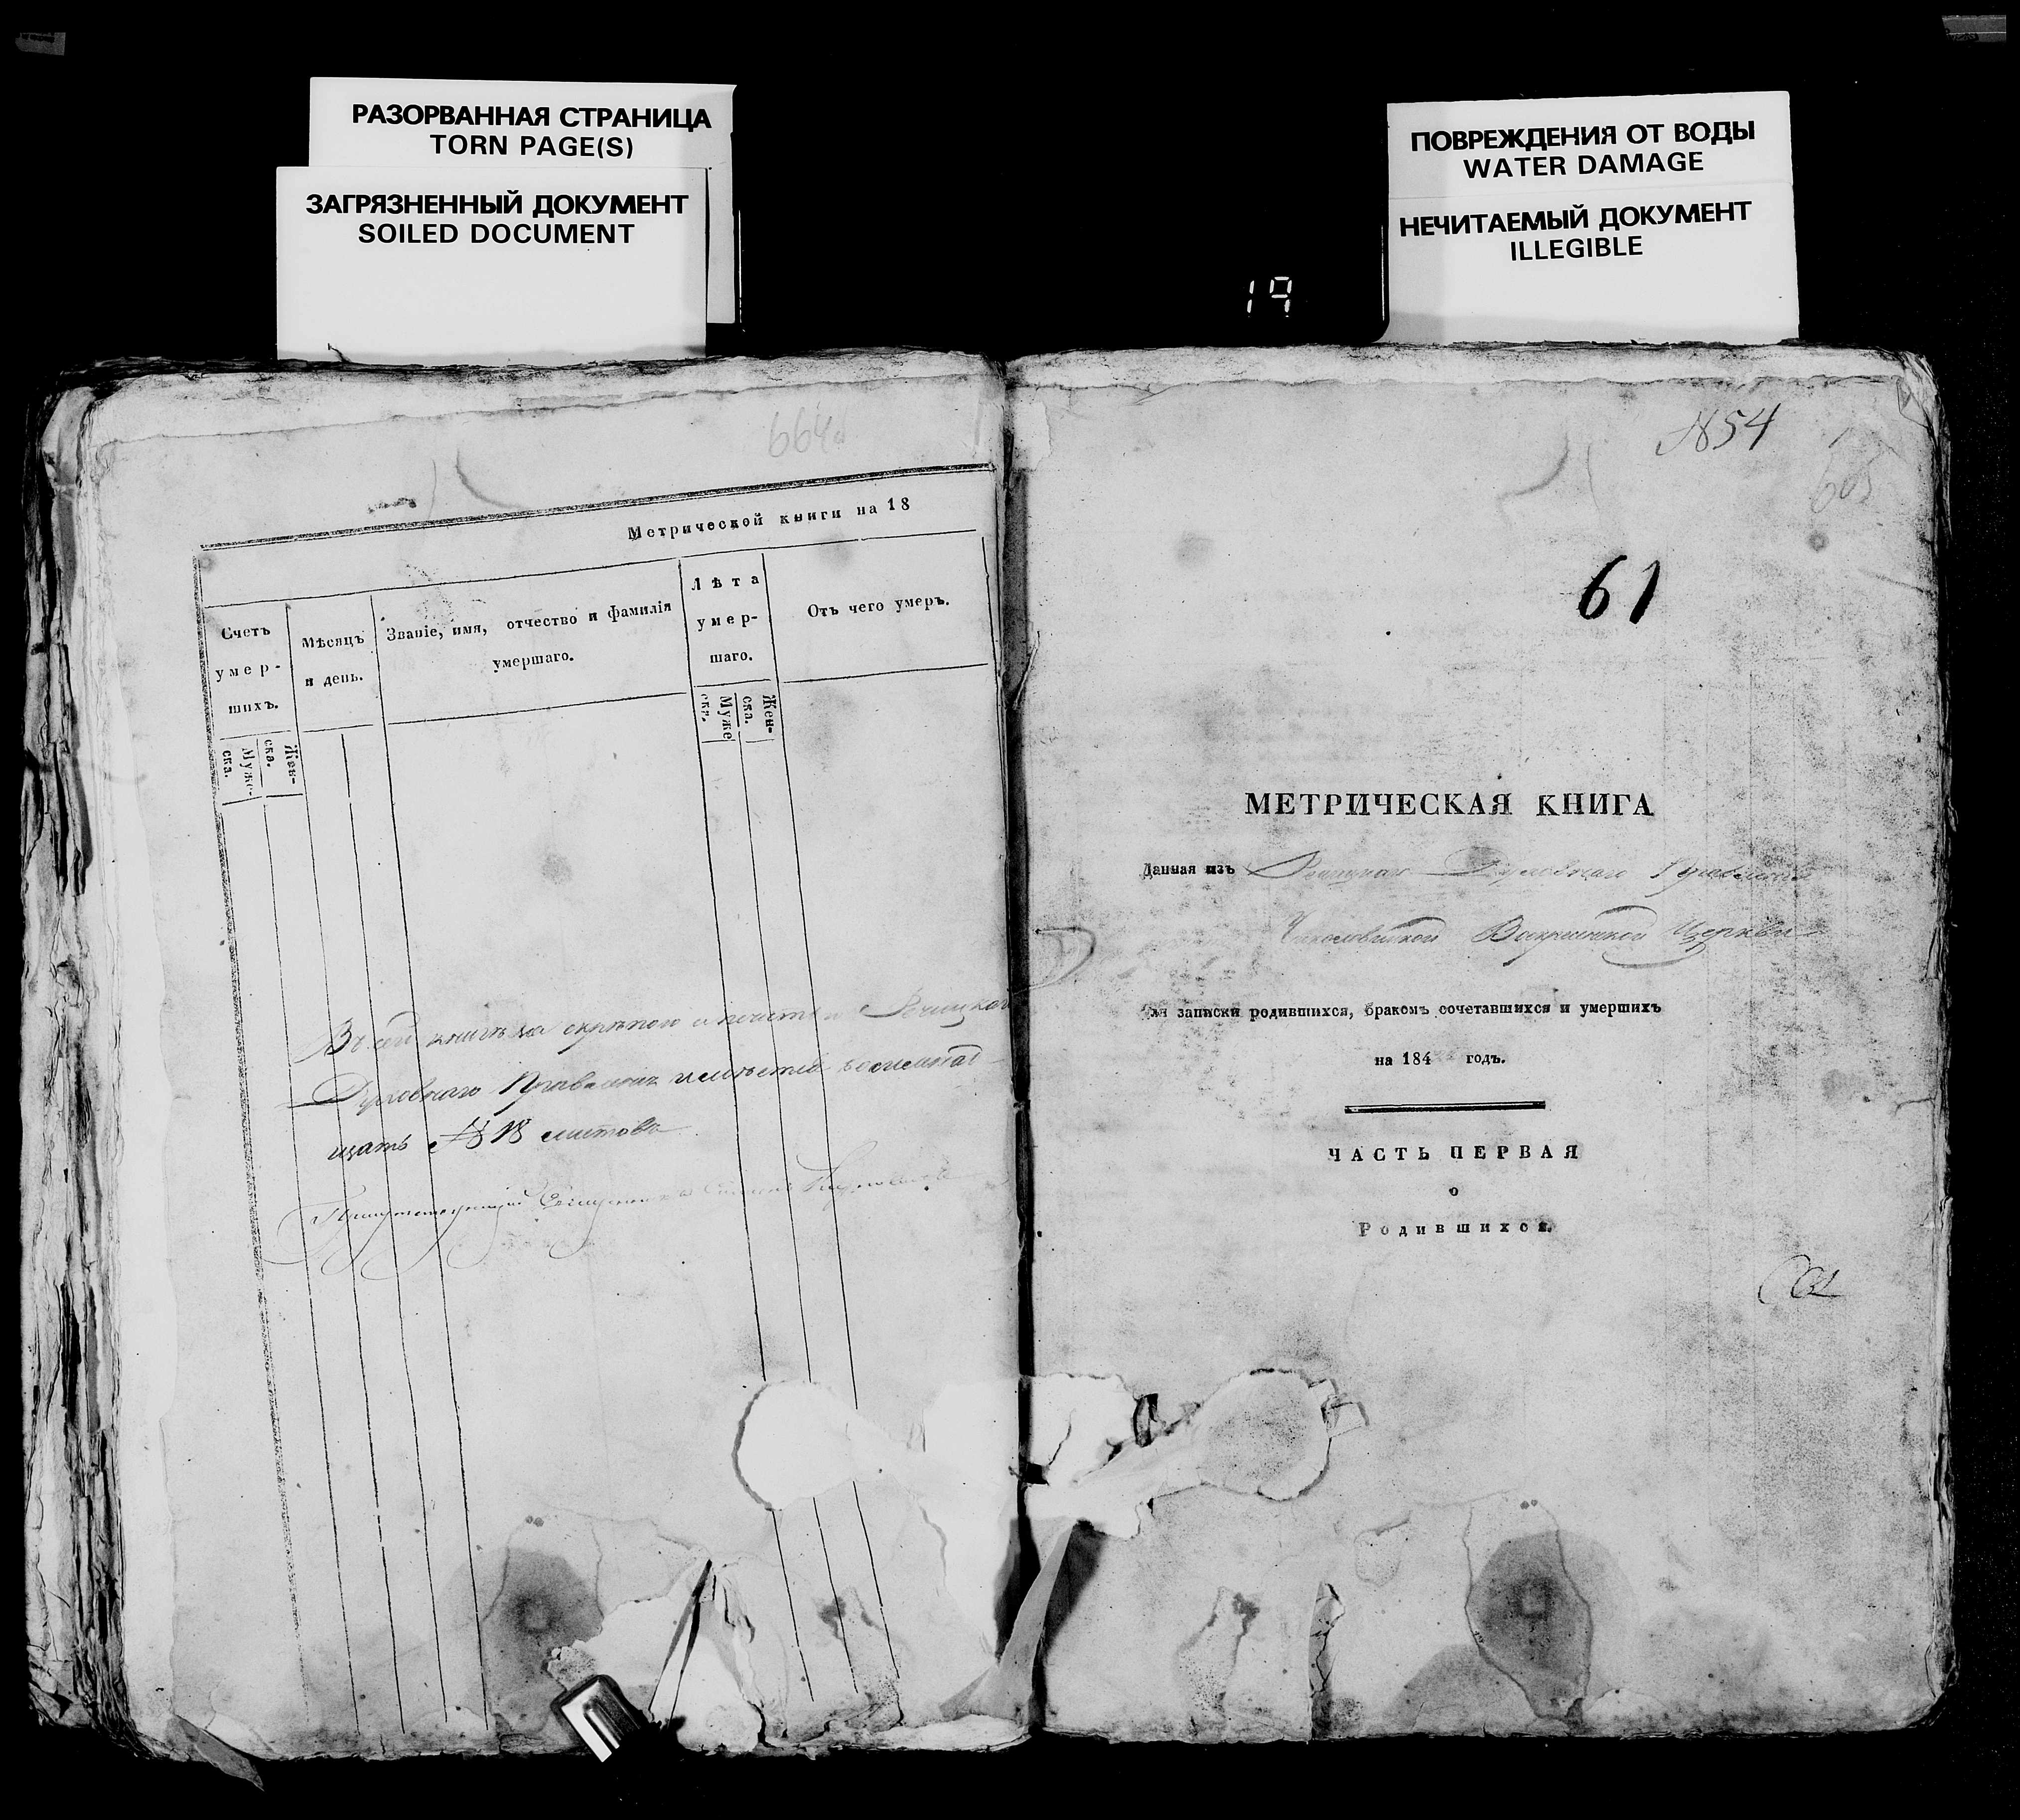 РАЗОРВАННАЯ СТРАНИЦА
TORN PAGE(S)
ЗАГРЯЗНЕННЫЙ ДОКУМЕНТ
SOILED DOCUMENT
ПОВРЕЖДЕНИЯ ОТ ВОДЫ
WATER DAMAGE
НЕЧИТАЕМЫЙ ДОКУМЕНТ
ILLEGIBLE
19
664
Метрической книги на 18
Счетъ умер-шихъ.
Мужс-ска.
Жен-ска.
Мѣсяцъ и день.
Званіе, имя, отчество и фамилія умершаго.
Лѣта умер-шаго.
Мужс-ска.
Жен-ска.
Отъ чего умеръ.
Въ сей книгѣ за скрѣпою и печатью Речицкаго
Духовнаго Правленія
цать №18 листовъ
№54
665
61
МЕТРИЧЕСКАЯ КНИГА
Данная изъ Речицкаго Духовнаго Правленія
Воскресенской Церкви
Для записки родившихся, бракомъ сочетавшихся и умершихъ
на 184 годъ.
ЧАСТЬ ПЕРВАЯ
о
Родившихся.